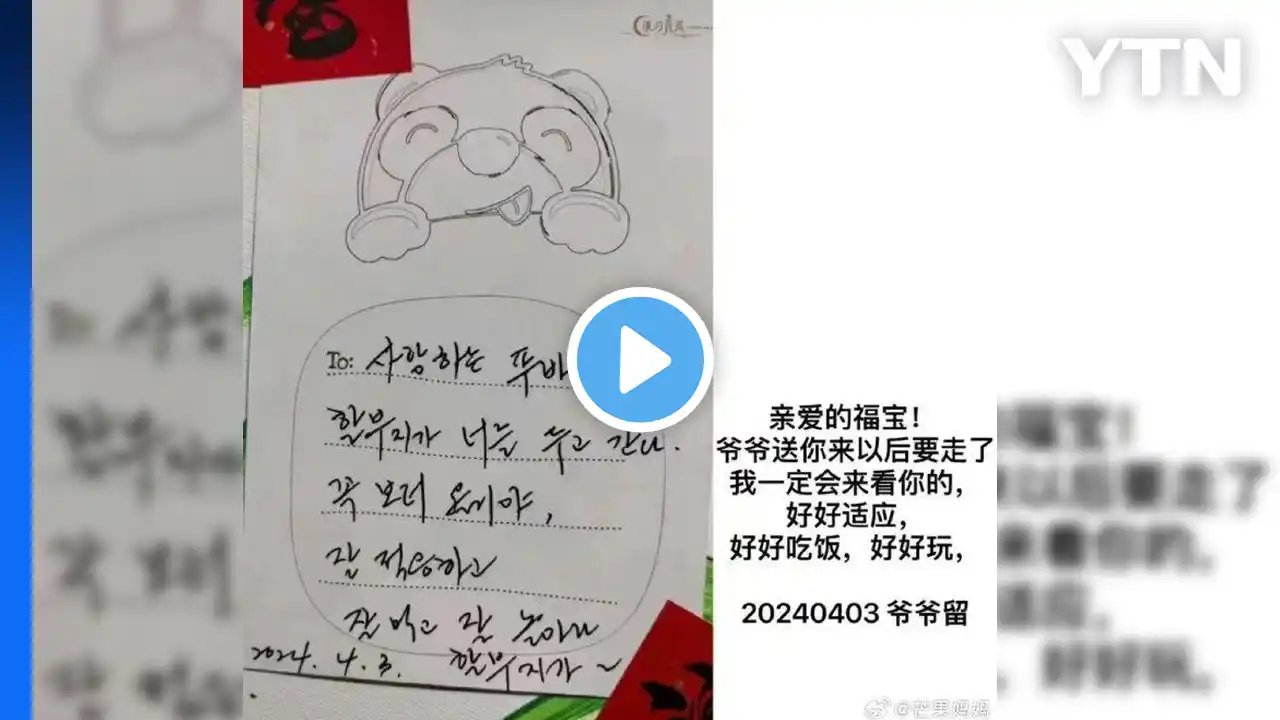 YTN
To: 사랑하는 푸바
할부지가 너를 두고 간다.
꼭 보러 올거야,
잘 적응하고
잘 먹고 잘 놀아라
2024. 4. 3. 할부지가~
亲爱的福宝！
爷爷送你来以后要走了
我一定会来看你的，
好好适应，
好好吃饭，好好玩，
20240403 爷爷留
@芒果妈妈